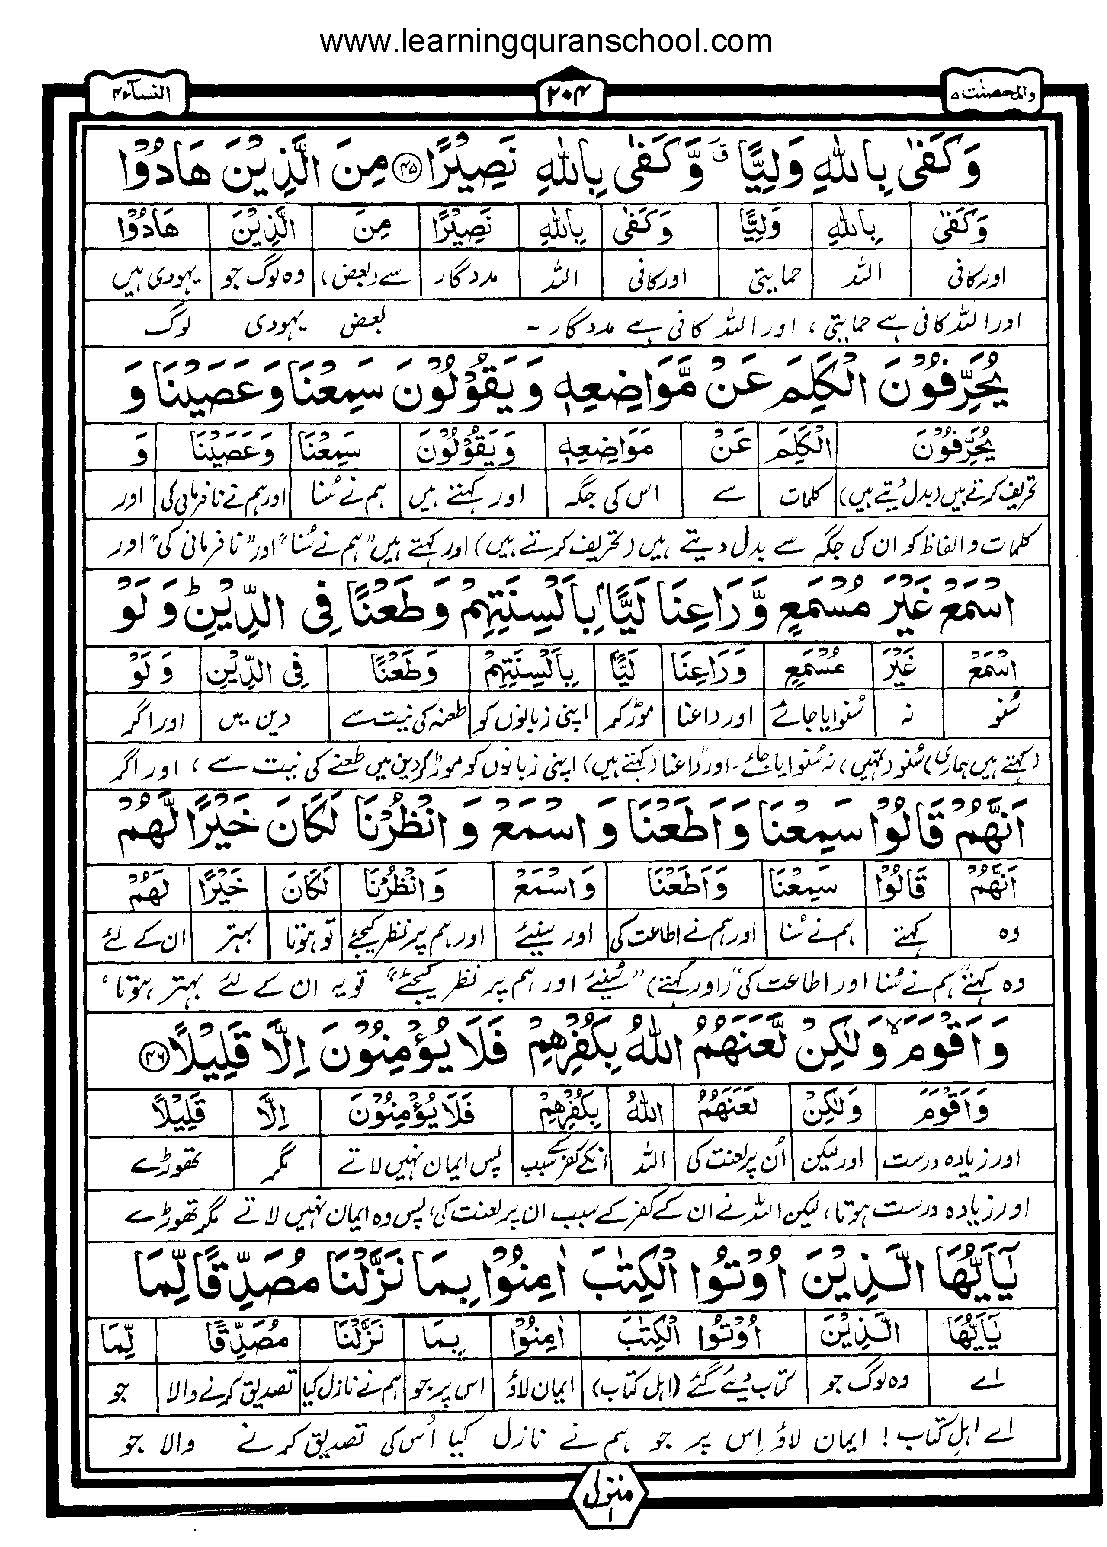 www.learningquranschool.com
والمحصنت ۵ ۲۰۴ النسآء ۴
وَكَفٰى بِاللّٰهِ وَلِيًّا ۗ وَّكَفٰى بِاللّٰهِ نَصِيْرًا ۝۴۵ مِنَ الَّذِيْنَ هَادُوْا
وَكَفٰى بِاللّٰهِ وَلِيًّا وَكَفٰى بِاللّٰهِ نَصِيْرًا مِنَ الَّذِيْنَ هَادُوْا
اور کافی اللہ حمایتی اور کافی اللہ مددگار سے (بعض) وہ لوگ جو یہودی ہیں
اور اللہ کافی ہے حمایتی، اور اللہ کافی ہے مددگار - بعض یہودی لوگ
يُحَرِّفُوْنَ الْكَلِمَ عَنْ مَّوَاضِعِهٖ وَيَقُوْلُوْنَ سَمِعْنَا وَعَصَيْنَا وَ
يُحَرِّفُوْنَ الْكَلِمَ عَنْ مَوَاضِعِهٖ وَيَقُوْلُوْنَ سَمِعْنَا وَعَصَيْنَا وَ
تحریف کرتے ہیں (بدل دیتے ہیں) کلمات سے اس کی جگہ اور کہتے ہیں ہم نے سُنا اور ہم نے نافرمانی کی اور
کلمات و الفاظ کو ان کی جگہ سے بدل دیتے ہیں (تحریف کرتے ہیں) اور کہتے ہیں "ہم نے سُنا" اور "نافرمانی کی" اور
اسْمَعْ غَيْرَ مُسْمَعٍ وَّرَاعِنَا لَيًّۢا بِاَلْسِنَتِهِمْ وَطَعْنًا فِى الدِّيْنِ ؕ وَلَوْ
اسْمَعْ غَيْرَ مُسْمَعٍ وَرَاعِنَا لَيًّا بِاَلْسِنَتِهِمْ وَطَعْنًا فِى الدِّيْنِ وَلَوْ
سُنو نہ سُنوایا جائے اور راعنا موڑ کر اپنی زبانوں کو طعنہ کی نیت سے دین میں اور اگر
(کہتے ہیں ہماری) سُنو (تمہیں) نہ سُنوایا جائے - اور راعنا (کہتے ہیں) اپنی زبانوں کو موڑ کر دین میں طعنے کی نیت سے، اور اگر
اَنَّهُمْ قَالُوْا سَمِعْنَا وَاَطَعْنَا وَاسْمَعْ وَانْظُرْنَا لَكَانَ خَيْرًا لَّهُمْ
اَنَّهُمْ قَالُوْا سَمِعْنَا وَاَطَعْنَا وَاسْمَعْ وَانْظُرْنَا لَكَانَ خَيْرًا لَهُمْ
وہ کہتے ہم نے سُنا اور ہم نے اطاعت کی اور سنیئے اور ہم پر نظر کیجئے تو ہوتا بہتر ان کے لئے
وہ کہتے "ہم نے سُنا اور اطاعت کی" (اور کہتے) "سُنیئے اور ہم پر نظر کیجئے" تو یہ ان کے لئے بہتر ہوتا،
وَاَقْوَمَ ۙ وَلٰكِنْ لَّعَنَهُمُ اللّٰهُ بِكُفْرِهِمْ فَلَا يُؤْمِنُوْنَ اِلَّا قَلِيْلًا ۝۴۶
وَاَقْوَمَ وَلٰكِنْ لَعَنَهُمُ اللّٰهُ بِكُفْرِهِمْ فَلَا يُؤْمِنُوْنَ اِلَّا قَلِيْلًا
اور زیادہ درست اور لیکن اُن پر لعنت کی اللہ انکے کفر کے سبب پس ایمان نہیں لاتے مگر تھوڑے
اور زیادہ درست ہوتا، لیکن اللہ نے ان کے کفر کے سبب ان پر لعنت کی، پس وہ ایمان نہیں لاتے مگر تھوڑے
يٰۤاَيُّهَا الَّذِيْنَ اُوْتُوا الْكِتٰبَ اٰمِنُوْا بِمَا نَزَّلْنَا مُصَدِّقًا لِّمَا
يٰۤاَيُّهَا الَّذِيْنَ اُوْتُوا الْكِتٰبَ اٰمِنُوْا بِمَا نَزَّلْنَا مُصَدِّقًا لِّمَا
اے وہ لوگ جو کتاب دیئے گئے (اہل کتاب) ایمان لاؤ اس پر جو ہم نے نازل کیا تصدیق کرنے والا جو
اے اہل کتاب! ایمان لاؤ اِس پر جو ہم نے نازل کیا اُس کی تصدیق کرنے والا جو
منزل ۱